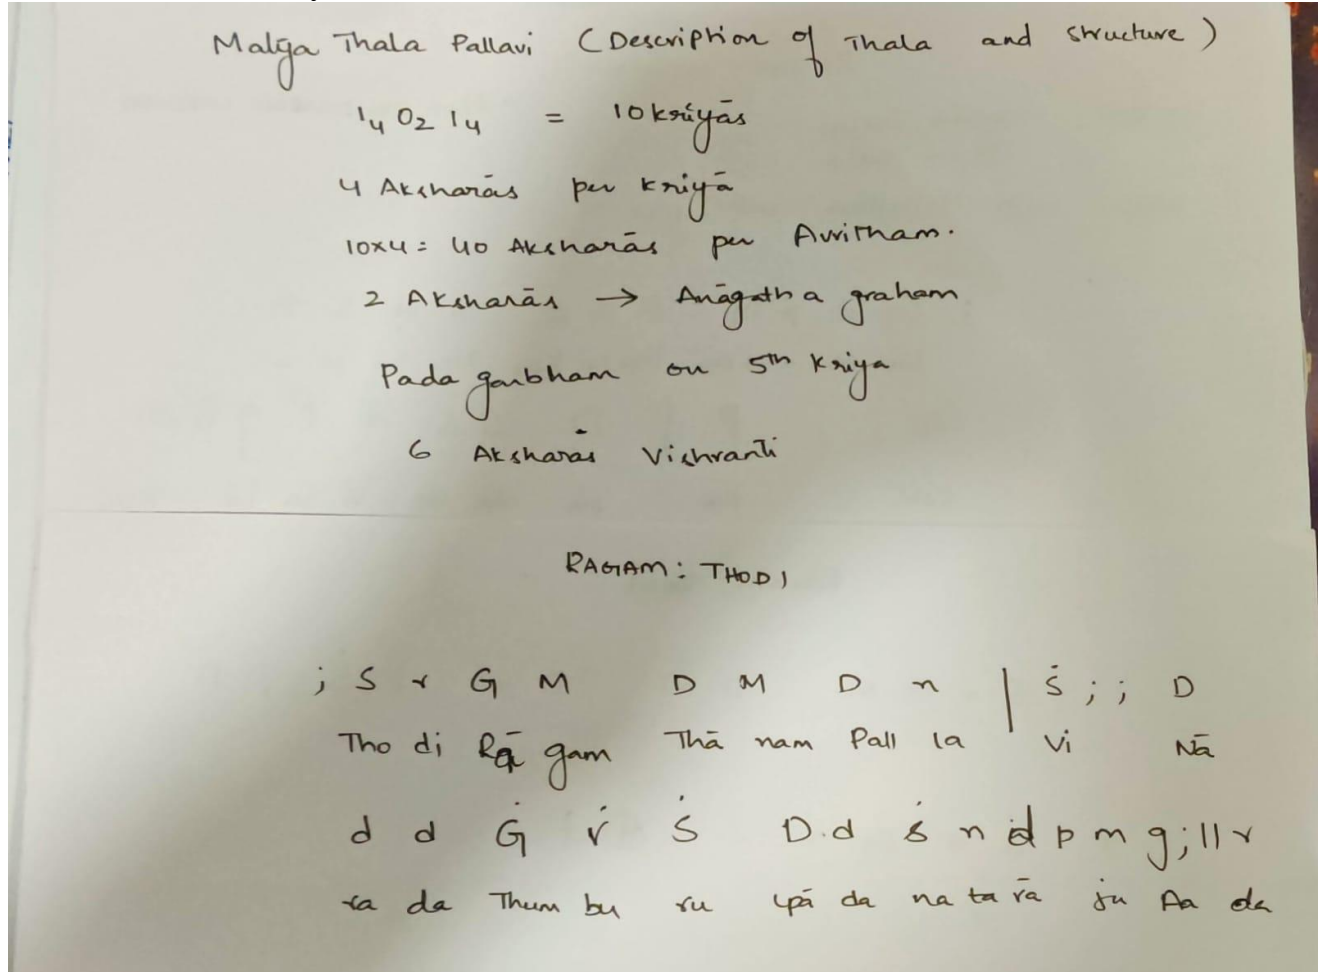 Malga Thala Pallavi (Description of Thala and structure)
1₄ O₂ 1₄ = 10 kriyās
4 Aksharās per kriyā
10x4 = 40 Aksharās per Avritham.
2 Aksharās → Anāgatha graham
Pada garbham on 5th kriya
6 Aksharās Vishranti
RAGAM: THODI
; S r G M D M D n | Ṡ ; ; D
Tho di Rā gam Thā nam Pall la vi Nā
d d Ġ ṙ Ṡ D.d ṡ n d p m g ; || r
ra da Thum bu ru pā da na ta rā ju Aa da